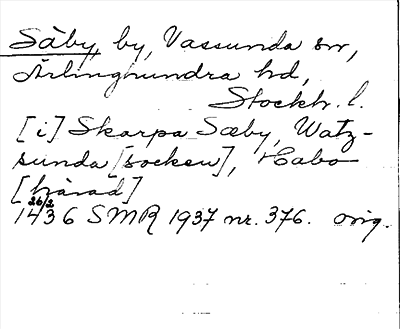 Säby, by, Vassunda sn,
Ärlinghundra hd,
Stockh. l.
[i] Skarpa Sæby, Watz-
sunda [socken], Habo
[härad]
26/2
1436 SMR 1937 nr. 376. orig.